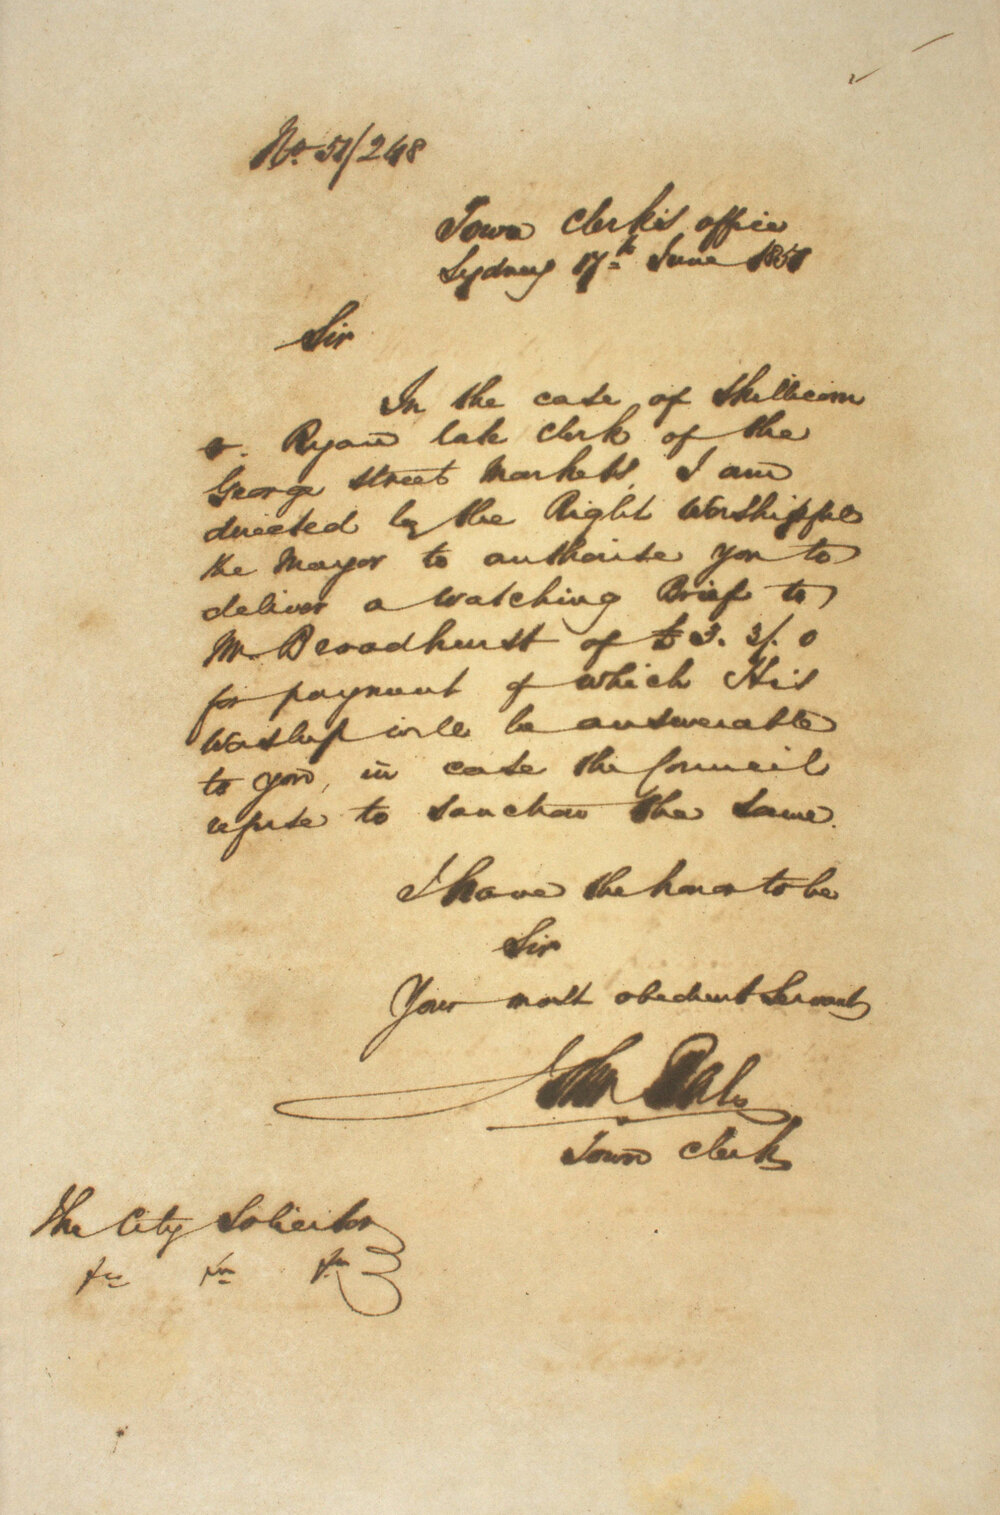 No. 51/248
Town Clerk's office
Sydney 17th June 1851
Sir
In the case of Skillicorn
v. Ryan late Clerk of the
George Street Markets, I am
directed by the Right Worshipful
the Mayor to authorise you to
deliver a watching Brief to
Mr. Broadhurst of £3. 3/. 0
for payment of which His
Worship will be answerable
to you, in case the Council
refuse to sanction the same.
I have the honor to be
Sir
Your most obedient Servant
John Rae
Town Clerk
The City Solicitor